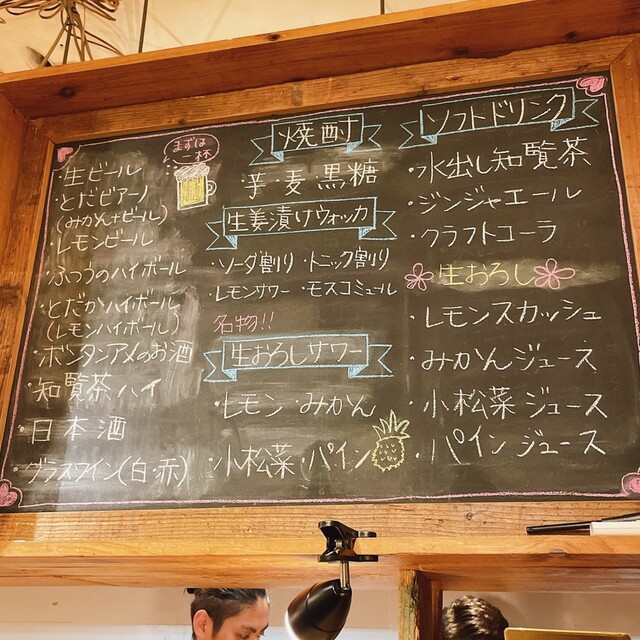 まずは
一杯
・生ビール
・とだビアーノ
(みかん+ビール)
・レモンビール
・ふつうのハイボール
・とだかハイボール
(レモンハイボール)
・ボンタンアメのお酒
・知覧茶ハイ
・日本酒
・グラスワイン(白・赤)
焼酎
芋・麦・黒糖
生姜漬けウォッカ
・ソーダ割り・トニック割り
・レモンサワー・モスコミュール
名物!!
生おろしサワー
・レモン・みかん
・小松菜・パイン
ソフトドリンク
・水出し知覧茶
・ジンジャエール
・クラフトコーラ
生おろし
・レモンスカッシュ
・みかんジュース
・小松菜ジュース
・パインジュース